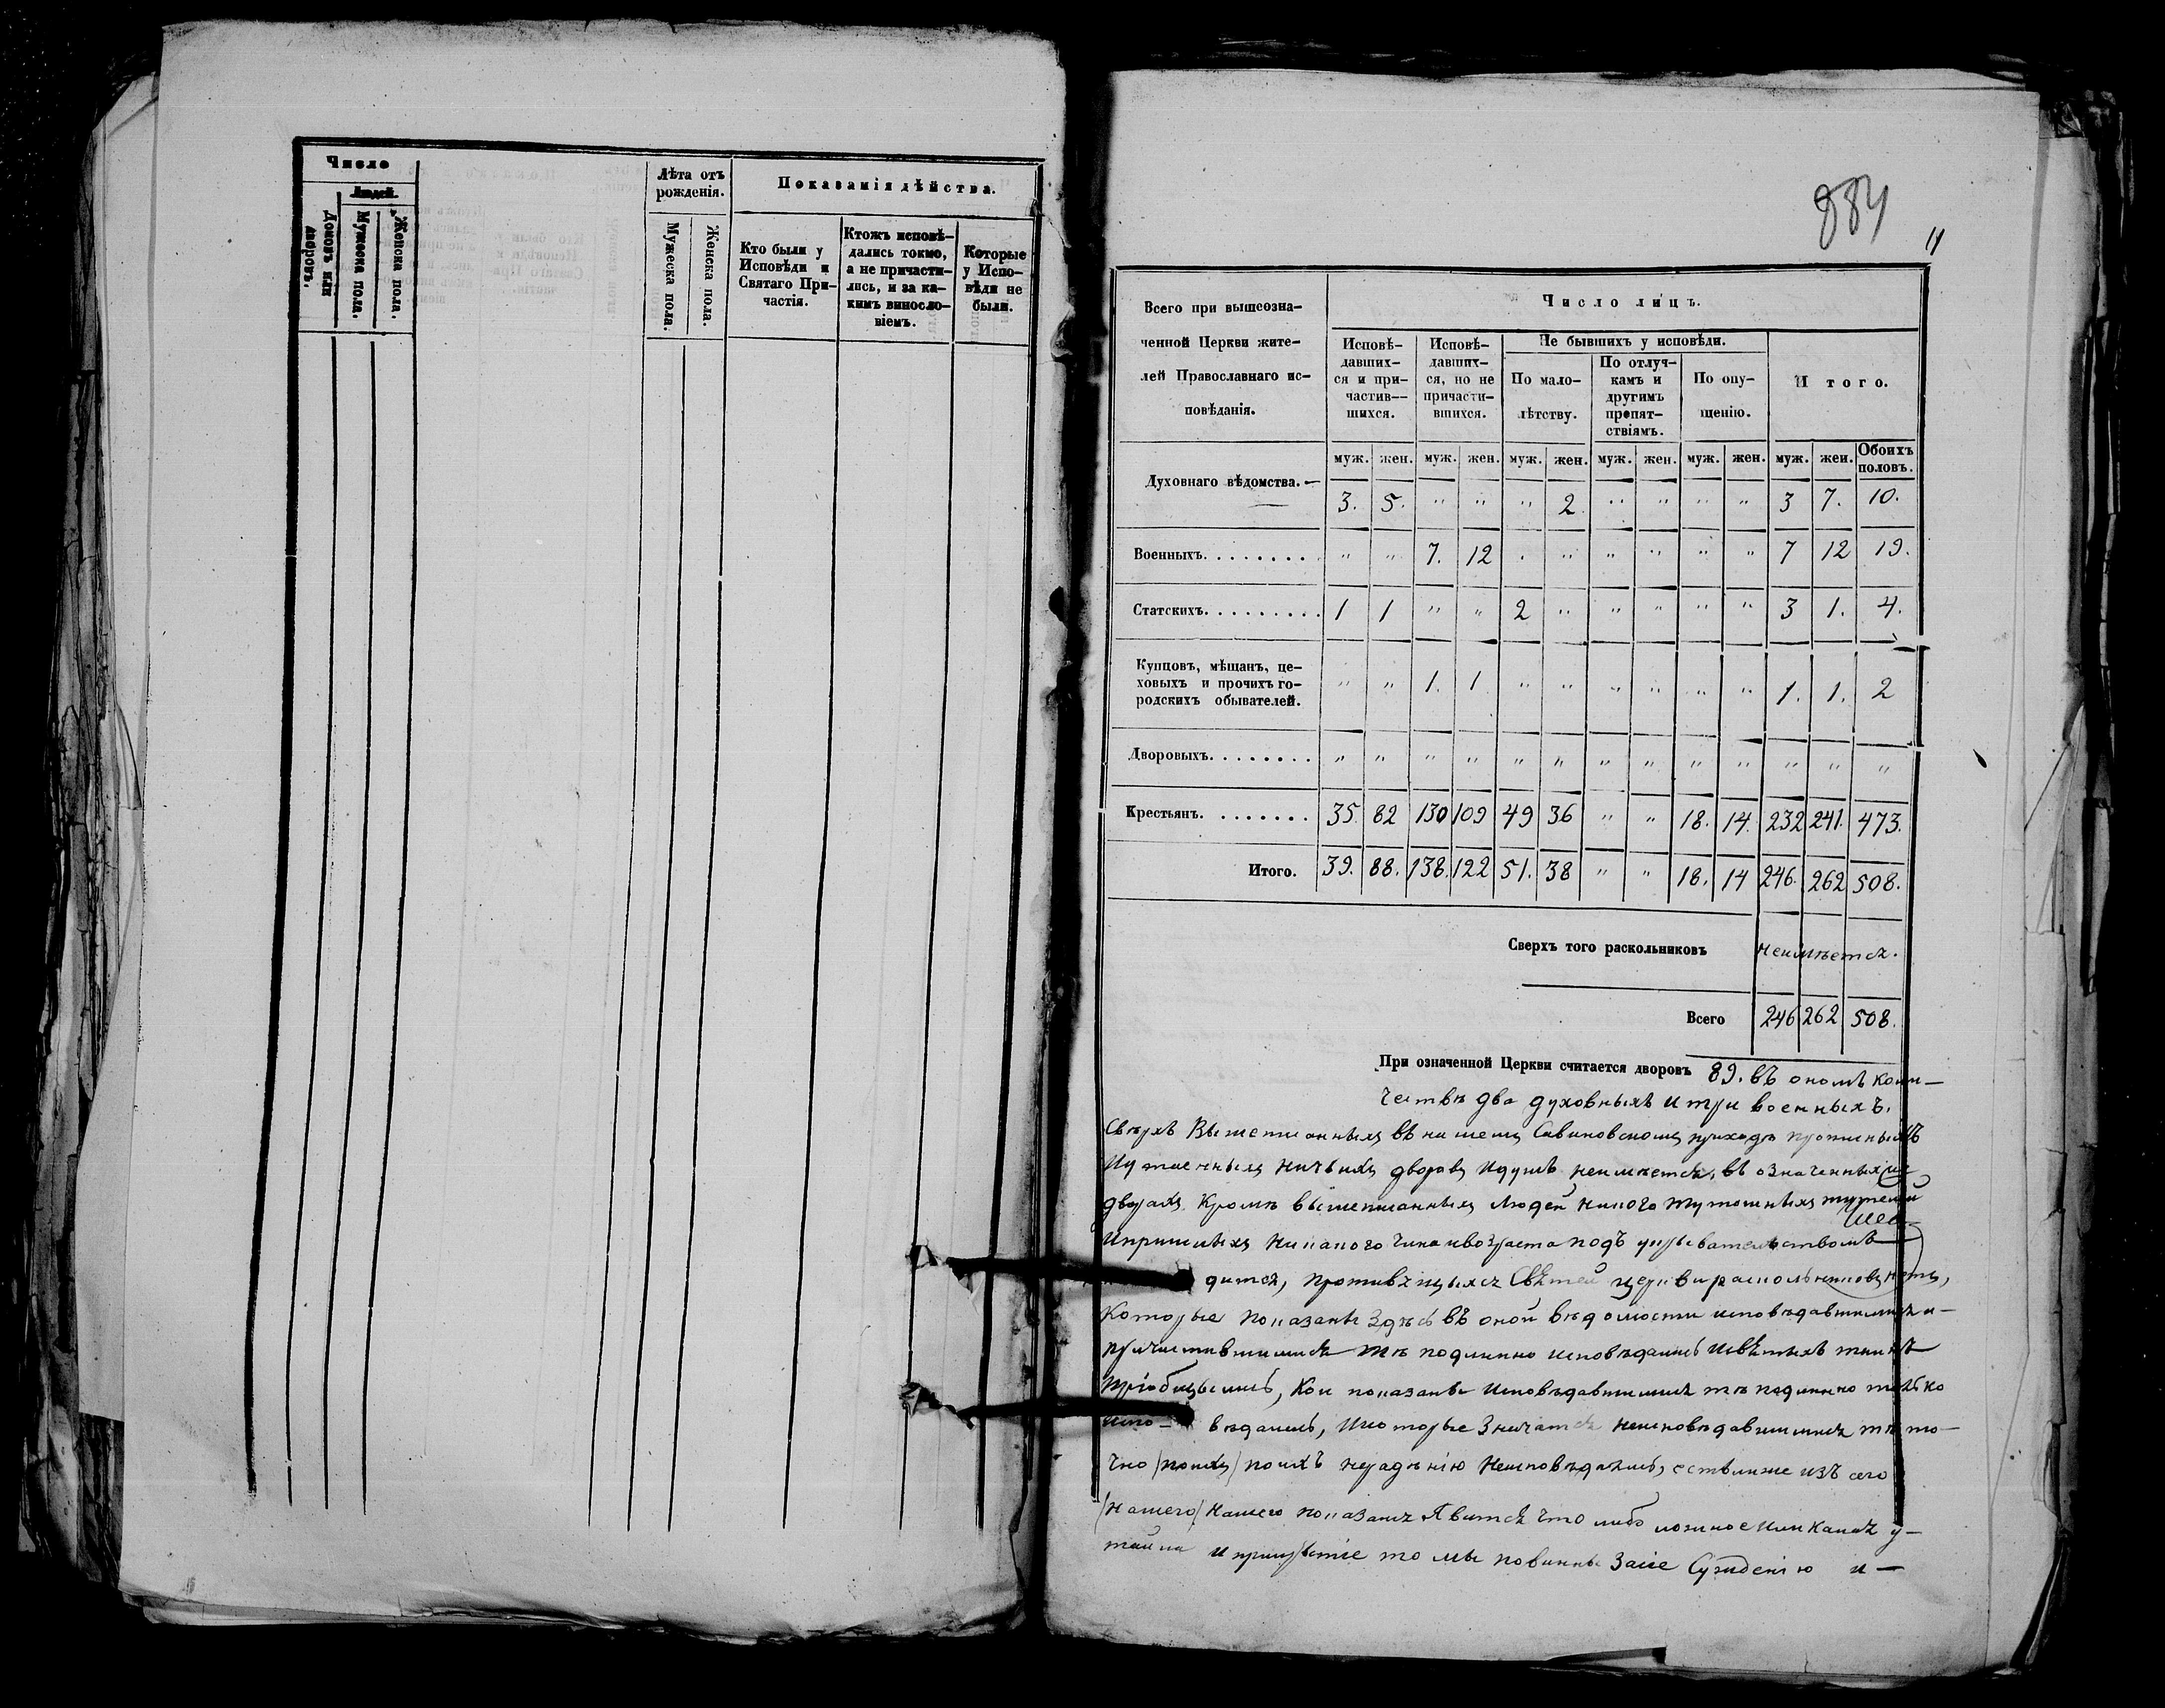 Число
Людей.
Домовъ или дворовъ.
Мужеска пола.
Женска пола.
Лѣта отъ
рожденія.
Мужеска пола.
Женска пола.
Показанія дѣйства.
Кто были у
Исповѣди и
Святаго При-
частія.
Ктожъ исповѣ-
дались токмо,
а не причасти-
лись, и за ка-
кимъ винословіемъ.
Которые
у Испо-
вѣди не
были.
884
11
Всего при вышеозна-
ченной Церкви жите-
лей Православнаго ис-
повѣданія.
Число лицъ.
Исповѣ-
давших-
ся и при-
частив-
шихся.
Исповѣ-
давших-
ся, но не
причасти-
вшихся.
Не бывшихъ у исповѣди.
По мало-
лѣтству.
По отлуч-
камъ и
другимъ
препят-
ствіямъ.
По опу-
щенію.
Итого.
муж. жен. муж. жен. муж. жен. муж. жен. муж. жен. муж. жен. Обоихъ половъ.
Духовнаго вѣдомства. 3. 5. " " " 2. " " " " 3 7. 10.
Военныхъ. " " 7. 12 " " " " " " 7 12 19.
Статскихъ. 1 1 " " 2 " " " " " 3 1. 4.
Купцовъ, мѣщанъ, це-
ховыхъ и прочихъ го-
родскихъ обывателей. " " 1. 1 " " " " " " 1. 1. 2
Дворовыхъ. " " " " " " " " " " " " "
Крестьянъ. 35. 82 130 109 49 36 " " 18. 14. 232 241. 473.
Итого. 39. 88. 138. 122 51. 38 " " 18. 14 246. 262 508.
Сверхъ того раскольниковъ неимѣется.
Всего 246 262 508.
При означенной Церкви считается дворовъ 89. въ ономъ коли-
чествѣ два духовныхъ и три военныхъ.
Сверхъ вышеписанныхъ въ нашемъ Савиновскомъ приходѣ
ничьихъ дворовъ и душъ неимѣется, въ означенныхъ же
дворахъ кромѣ вышеписанныхъ людей никого
и пришлыхъ никакого чина и возраста подъ укрывательствомъ
дится, противящихся Святей церкви раскольниковъ нетъ,
которые показаны здѣсь въ оной вѣдомости исповѣдавшимися и-
причастившимися тѣ подлинно исповѣдались и святыхъ таинъ
пріобщились, кои показаны исповѣдавшимися тѣ подлинно только
испо- вѣдались, и которые значатся неисповѣдавшимися тѣ то-
чно /поихъ/ поихъ нерадѣнію неисповѣдались, естьлиже изъ сего
/нашего/ нашего показанія явится что либо ложное или какая у-
тайка и прикрытіе то мы повинны за сіе сужденію и-